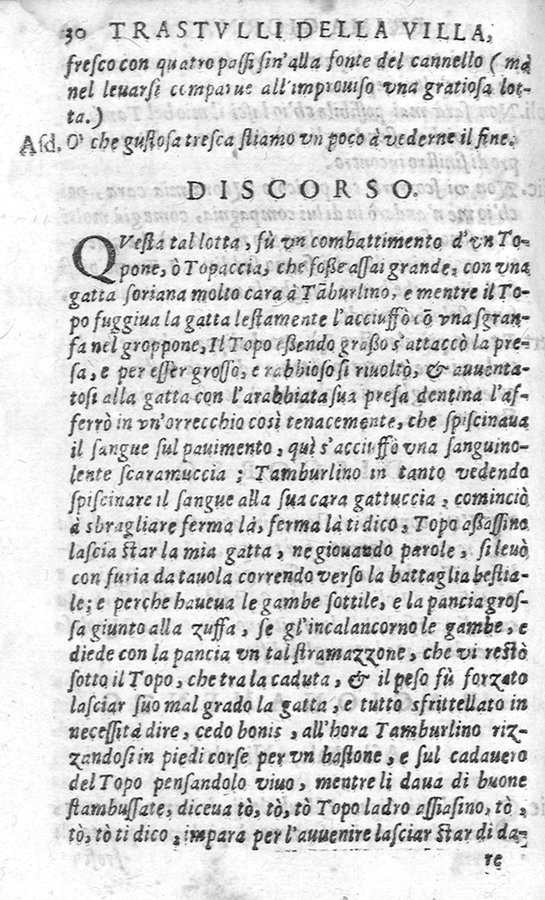 30 TRASTVLLI DELLA VILLA,
fresco con quatro passi sin'alla fonte del cannello (mà
nel leuarsi comparue all'improuiso vna gratiosa lot-
ta.)
Asd. O' che gustosa tresca stiamo vn poco à vederne il fine.
DISCORSO.
QVesta tal lotta, fù vn combattimento d'vn To-
pone, ò Topaccia, che fosse assai grande, con vna
gatta soriana molto cara à Tãburlino, e mentre il To-
po fuggiua la gatta lestamente l'acciuffò cõ vna sgran-
fa nel groppone, Il Topo essendo grasso s'attaccò la pre-
sa, e per esser grosso, e rabbioso si riuoltò, & auuenta-
tosi alla gatta con l'arabbiata sua presa dentina l'af-
ferrò in vn'orrecchio così tenacemente, che spiscinaua
il sangue sul pauimento, quì s'acciuffò vna sanguino-
lente scaramuccia; Tamburlino in tanto vedendo
spiscinare il sangue alla sua cara gattuccia, cominciò
à sbragliare ferma là, ferma là ti dico, Topo assassino
lascia star la mia gatta, ne giouando parole, si leuò
con furia da tauola correndo verso la battaglia bestia-
le; e perche haueua le gambe sottile, e la pancia gros-
sa giunto alla zuffa, se gl'incalancorno le gambe, e
diede con la pancia vn tal stramazzone, che vi restò
sotto il Topo, che tra la caduta, & il peso fù forzato
lasciar suo mal grado la gatta, e tutto sfrittellato in
necessità dire, cedo bonis, all'hora Tamburlino riz-
zandosi in piedi corse per vn bastone, e sul cadauero
del Topo pensandolo viuo, mentre li daua di buone
stambussate, diceua tò, tò, tò Topo ladro assiasino, tò,
tò, tò ti dico, impara per l'auuenire lasciar star di da-
re